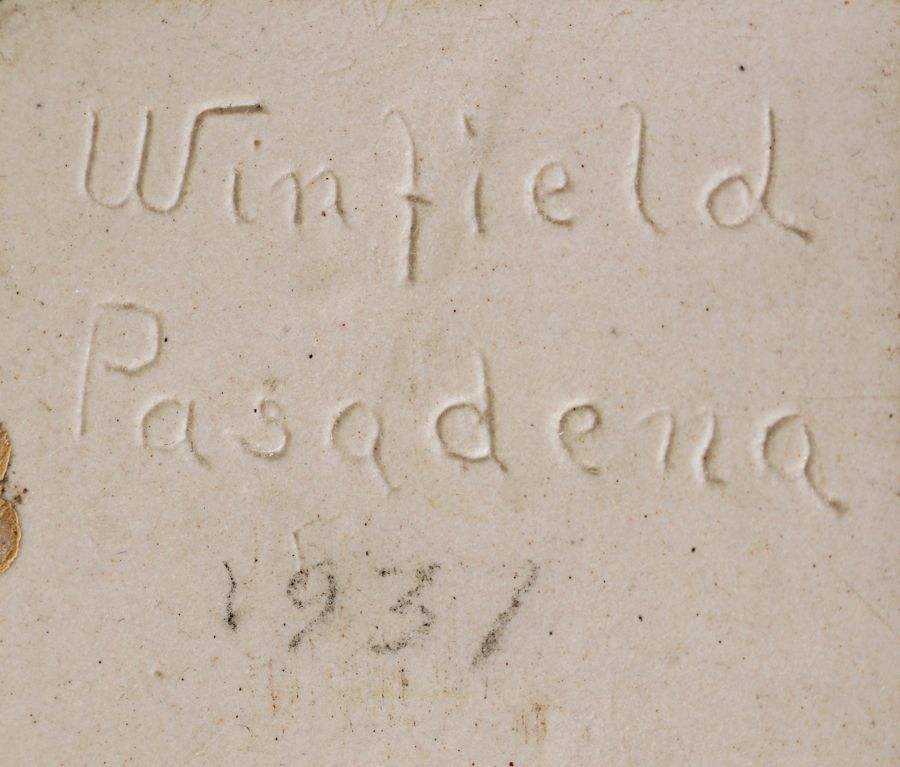 Winfield
Pasadena
1931